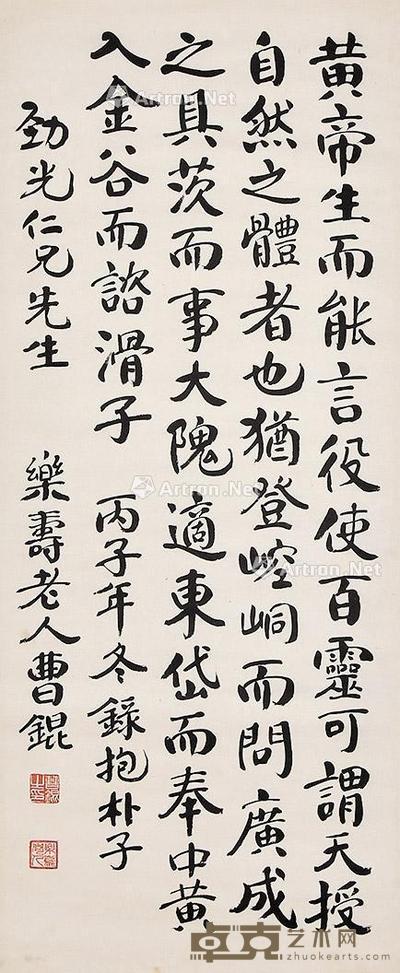 黄帝生而能言役使百靈可謂天授
自然之體者也猶登崆峒而問廣成
之具茨而事大隗適東岱而奉中黄
入金谷而諮滑子 丙子年冬錄抱朴子
劲光仁兄先生
樂壽老人曹錕
Artron.Net
Artron.Net
Artron.Net
Artron.Net
卓克艺术网
zhuokearts.com